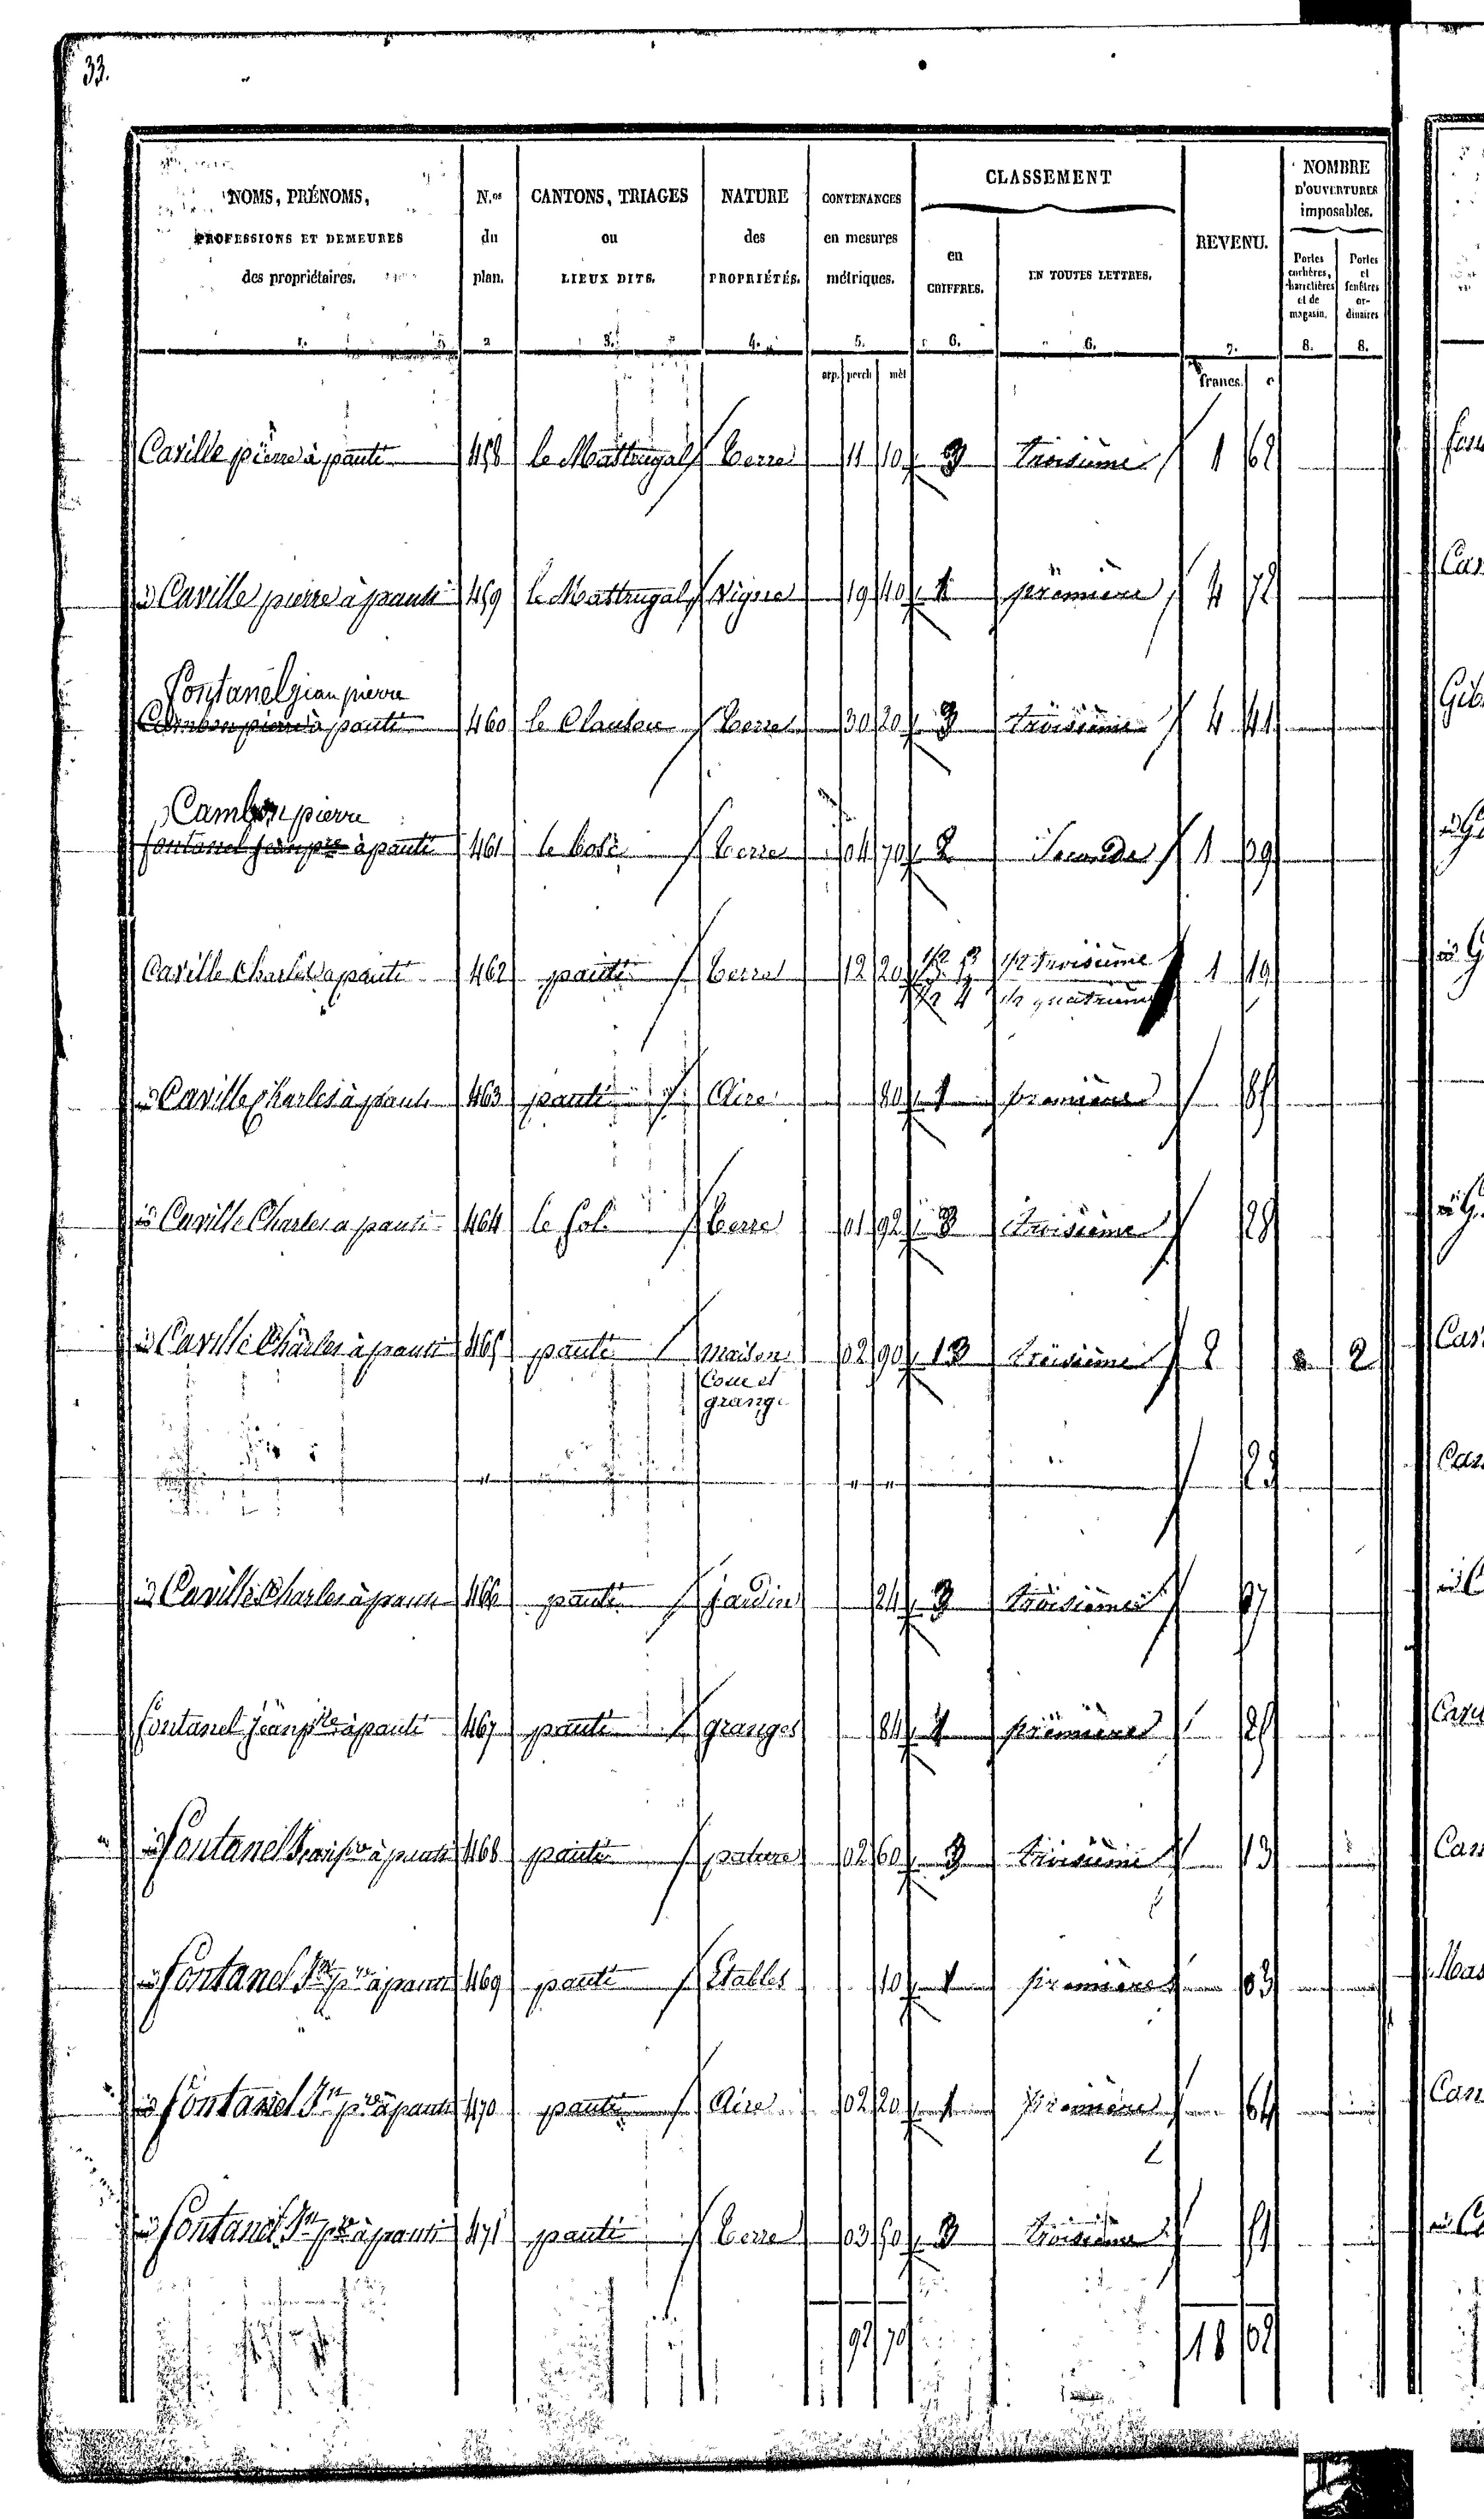 33.
NOMS, PRÉNOMS, PROFESSIONS ET DEMEURES des propriétaires. N.os du plan. CANTONS, TRIAGES ou LIEUX DITS. NATURE des PROPRIÉTÉS. CONTENANCES en mesures métriques. CLASSEMENT en CHIFFRES. EN TOUTES LETTRES. REVENU. NOMBRE D'OUVERTURES imposables. Portes cochères, charretières et de magasin. Portes et fenêtres ordinaires
1. 2 3. 4. 5. 6. 6. 7. 8. 8.
arp. perch mèt francs c
Caville pierre à pauti 458 le Mastrugal terre 11 10 3 troisième 1 62
id Caville pierre à pauti 459 le Mastrugal vigne 19 40 1 première 4 72
Fontanel jean pierre
Cambon pierre à pauti 460 le Clausou terre 30 20 3 troisième 4 41
Cambon pierre
fontanel jean pre à pauti 461 le bosc terre 04 70 2 Seconde 1 29
Caville Charles a pauti 462 pauti terre 12 20 1/2 3 1/2 troisième 1 19
1/2 4 1/2 quatrieme
id Caville Charles à pauti 463 pauti Aire 80 1 première
id Caville Charles a pauti 464 le sol terre 01 92 3 troisième 28
id Caville Charles à pauti 465 pauti maison 02 90 13 troisième 2
Cour et
grange
" " " 23
id Caville Charles à pauti 466 pauti jardin 24 3 troisième 07
fontanel jean pre à pauti 467 pauti granges 84 1 première 25
id fontanel jean pre à pauti 468 pauti pature 02 60 3 troisième 13
id fontanel Jn pre à pauti 469 pauti Etables 10 1 première 03
id fontanel Jn pre à pauti 470 pauti Aire 02 20 1 première 64
id fontanel Jn pre à pauti 471 pauti terre 03 50 3 troisième 51
92 70 18 02